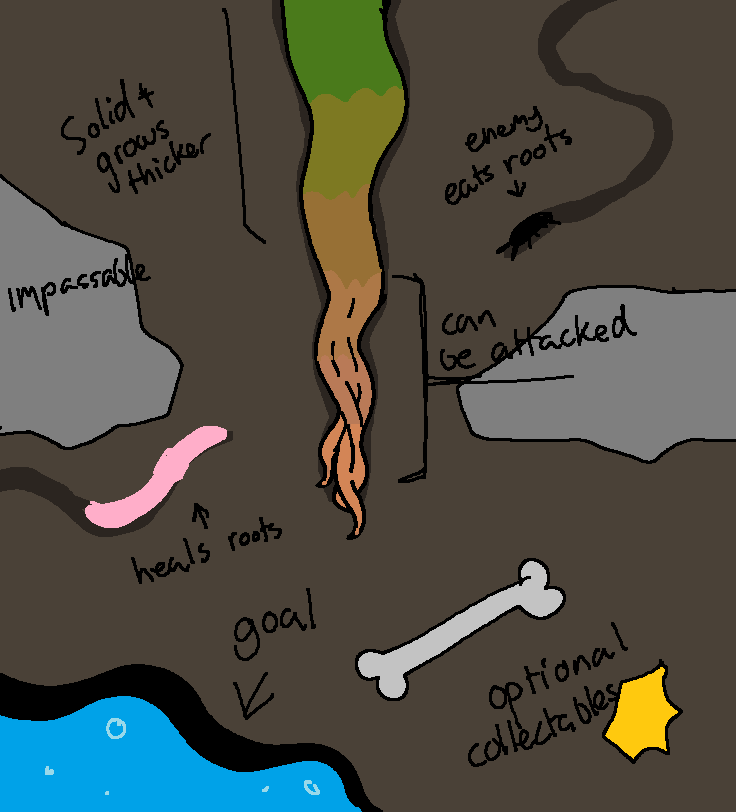 Solid +
grows
thicker
enemy
eats roots
impassable
can
be attacked
heals roots
goal
optional
collectables